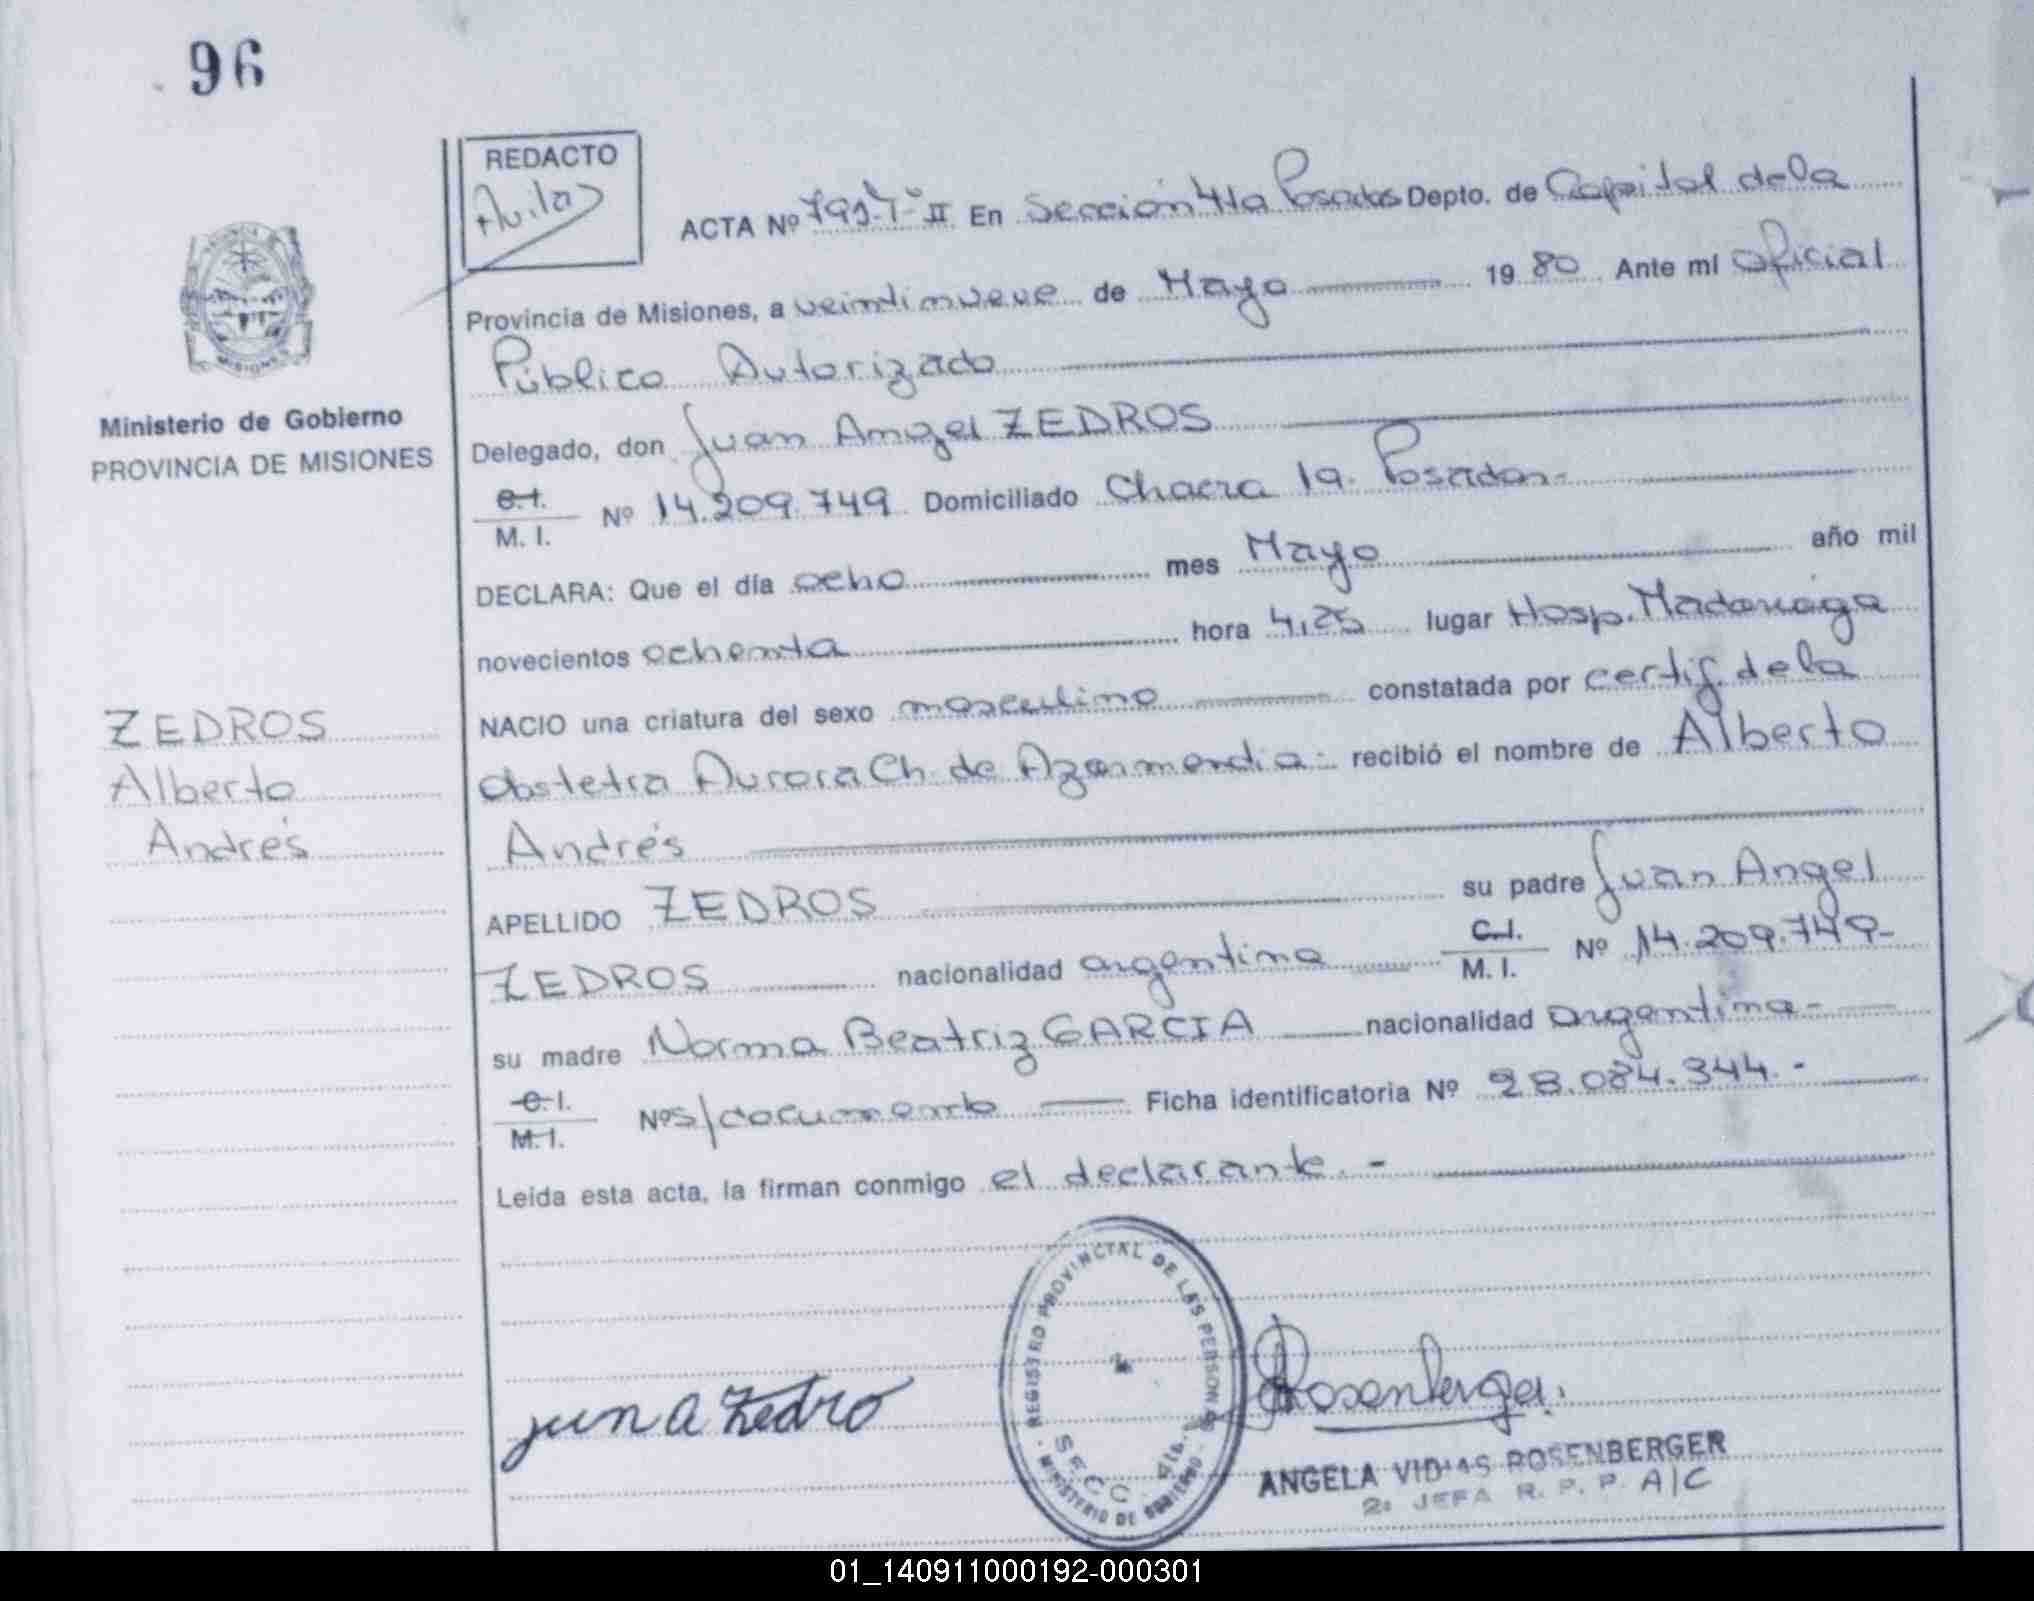 96
REDACTO
Avilas
ACTA Nº 791-T-II En Sección 4ta Posadas Depto. de Capital de la
Provincia de Misiones, a veintinueve de Mayo 1980 Ante mí Oficial
Público Autorizado
Ministerio de Gobierno
PROVINCIA DE MISIONES
Delegado, don Juan Angel ZEDROS
C.I.
M. I. Nº 14.209.749 Domiciliado Chacra 19. Posadas-
DECLARA: Que el día ocho mes Mayo año mil
novecientos ochenta hora 4,25 lugar Hosp. Madariaga
NACIO una criatura del sexo masculino constatada por certif. de la
Obstetra Aurora Ch. de Azarmendia- recibió el nombre de Alberto
Andrés
ZEDROS
Alberto
Andrés
APELLIDO ZEDROS su padre Juan Angel
ZEDROS nacionalidad argentina C.I. M. I. Nº 14.209.749-
su madre Norma Beatriz GARCIA nacionalidad argentina-
C.I.
M.I. Nº s/documento Ficha identificatoria Nº 28.084.344.-
Leída esta acta, la firman conmigo el declarante.-
REGISTRO PROVINCIAL DE LAS PERSONAS
SECC. 4ta.
MINISTERIO DE GOBIERNO
jun A Zedro
Rosenberger
ANGELA VIDIAS ROSENBERGER
2º JEFA R. P. P. A/C
01_140911000192-000301